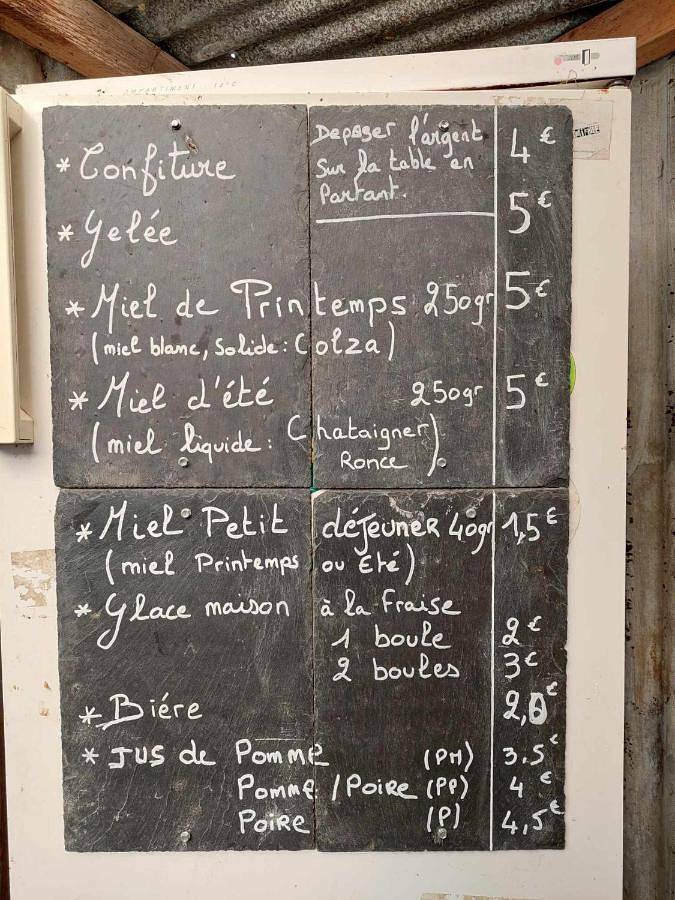 * Confiture 4€
Deposer l'argent
sur la table en
Partant.
* Gelée 5€
* Miel de Printemps 250gr 5€
(miel blanc, solide: Colza)
* Miel d'été 250gr 5€
(miel liquide: Chataigner
Ronce)
* Miel Petit déjeuner 40gr 1,5€
(miel Printemps ou Eté)
* Glace maison à la fraise
1 boule 2€
2 boules 3€
* Biére 2,0€
* Jus de Pomme (PM) 3.5€
Pomme / Poire (PP) 4€
Poire (P) 4,5€